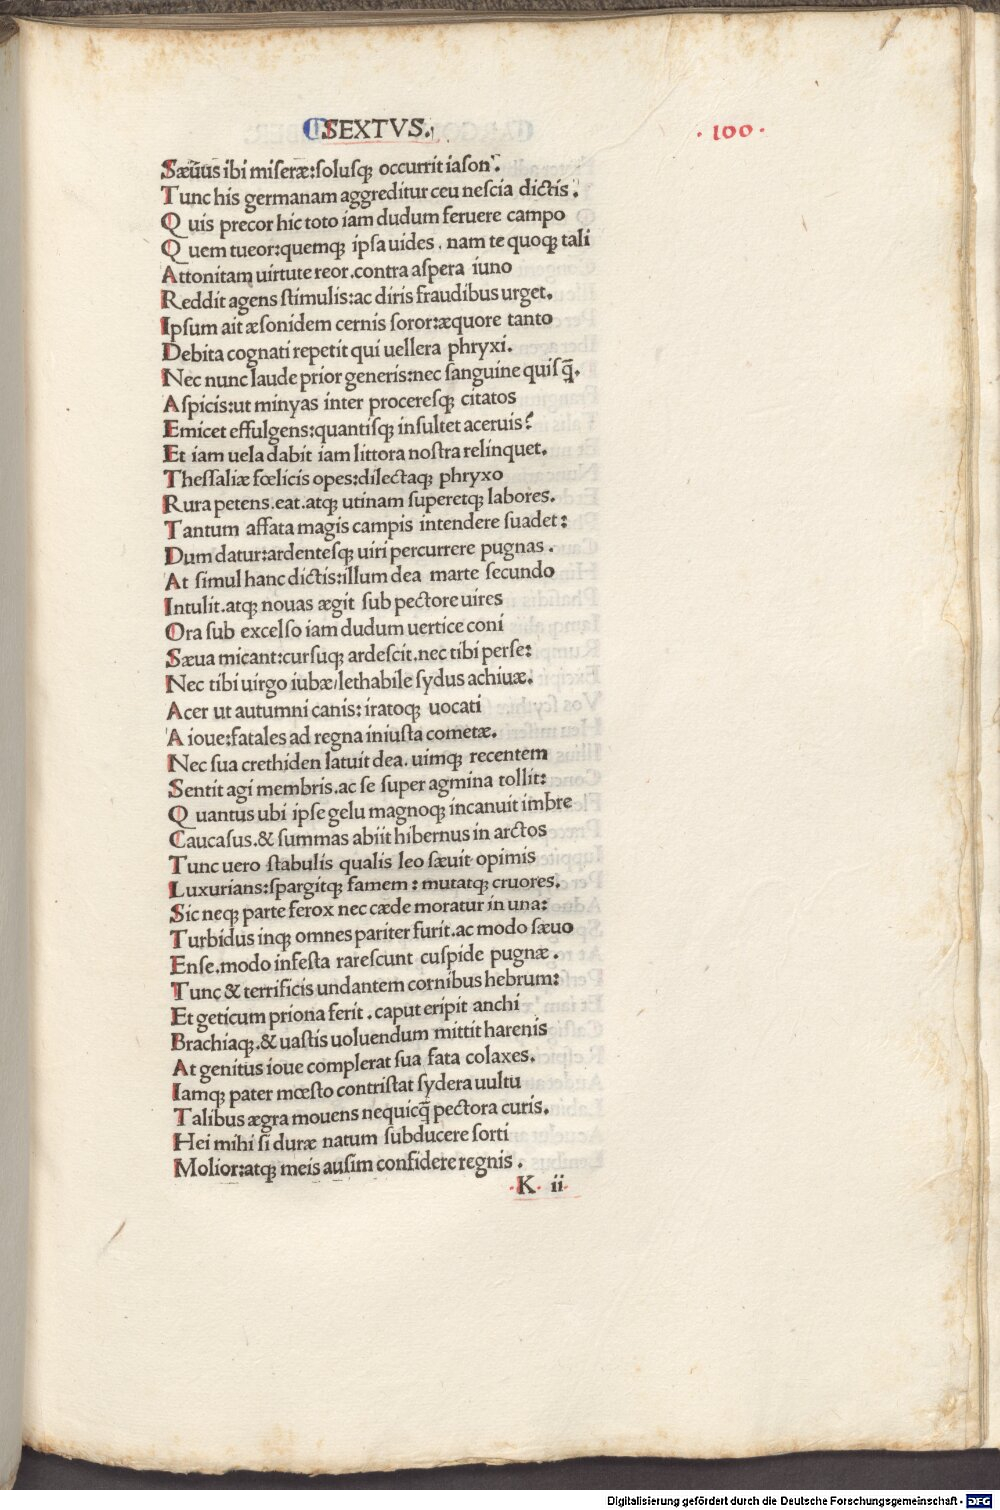 SEXTVS.
.100.
Sæuus ibi miseræ:solusq; occurrit iason.
Tunc his germanam aggreditur ceu nescia dictis.
Quis precor hic toto iam dudum feruere campo
Quem tueor:quemq; ipsa uides. nam te quoq; tali
Attonitam uirtute reor.contra aspera iuno
Reddit agens stimulis:ac diris fraudibus urget.
Ipsum ait æsonidem cernis soror:æquore tanto
Debita cognati repetit qui uellera phryxi.
Nec nunc laude prior generis:nec sanguine quisq̄.
Aspicis:ut minyas inter proceresq; citatos
Emicet effulgens:quantisq; insultet aceruis?
Et iam uela dabit iam littora nostra relinquet.
Thessaliæ fœlicis opes:dilectaq; phryxo
Rura petens.eat.atq; utinam superetq; labores.
Tantum affata magis campis intendere suadet:
Dum datur:ardentesq; uiri percurrere pugnas.
At simul hanc dictis:illum dea marte secundo
Intulit.atq; nouas ægit sub pectore uires
Ora sub excelso iam dudum uertice coni
Sæua micant:cursuq; ardescit.nec tibi perse:
Nec tibi uirgo iubæ/lethabile sydus achiuæ.
Acer ut autumni canis:iratoq; uocati
A ioue:fatales ad regna iniusta cometæ.
Nec sua crethiden latuit dea. uimq; recentem
Sentit agi membris.ac se super agmina tollit:
Quantus ubi ipse gelu magnoq; incanuit imbre
Caucasus.& summas abiit hibernus in arctos
Tunc uero stabulis qualis leo sæuit opimis
Luxurians:spargitq; famem: mutatq; cruores.
Sic neq; parte ferox nec cæde moratur in una:
Turbidus inq; omnes pariter furit.ac modo sæuo
Ense.modo infesta rarescunt cuspide pugnæ.
Tunc & terrificis undantem cornibus hebrum:
Et geticum priona ferit. caput eripit anchi
Brachiaq;.& uastis uoluendum mittit harenis
At genitus ioue complerat sua fata colaxes.
Iamq; pater mœsto contristat sydera uultu
Talibus ægra mouens nequicq̄ pectora curis.
Hei mihi si duræ natum subducere sorti
Molior:atq; meis ausim confidere regnis.
K ii
Digitalisierung gefördert durch die Deutsche Forschungsgemeinschaft - DFG